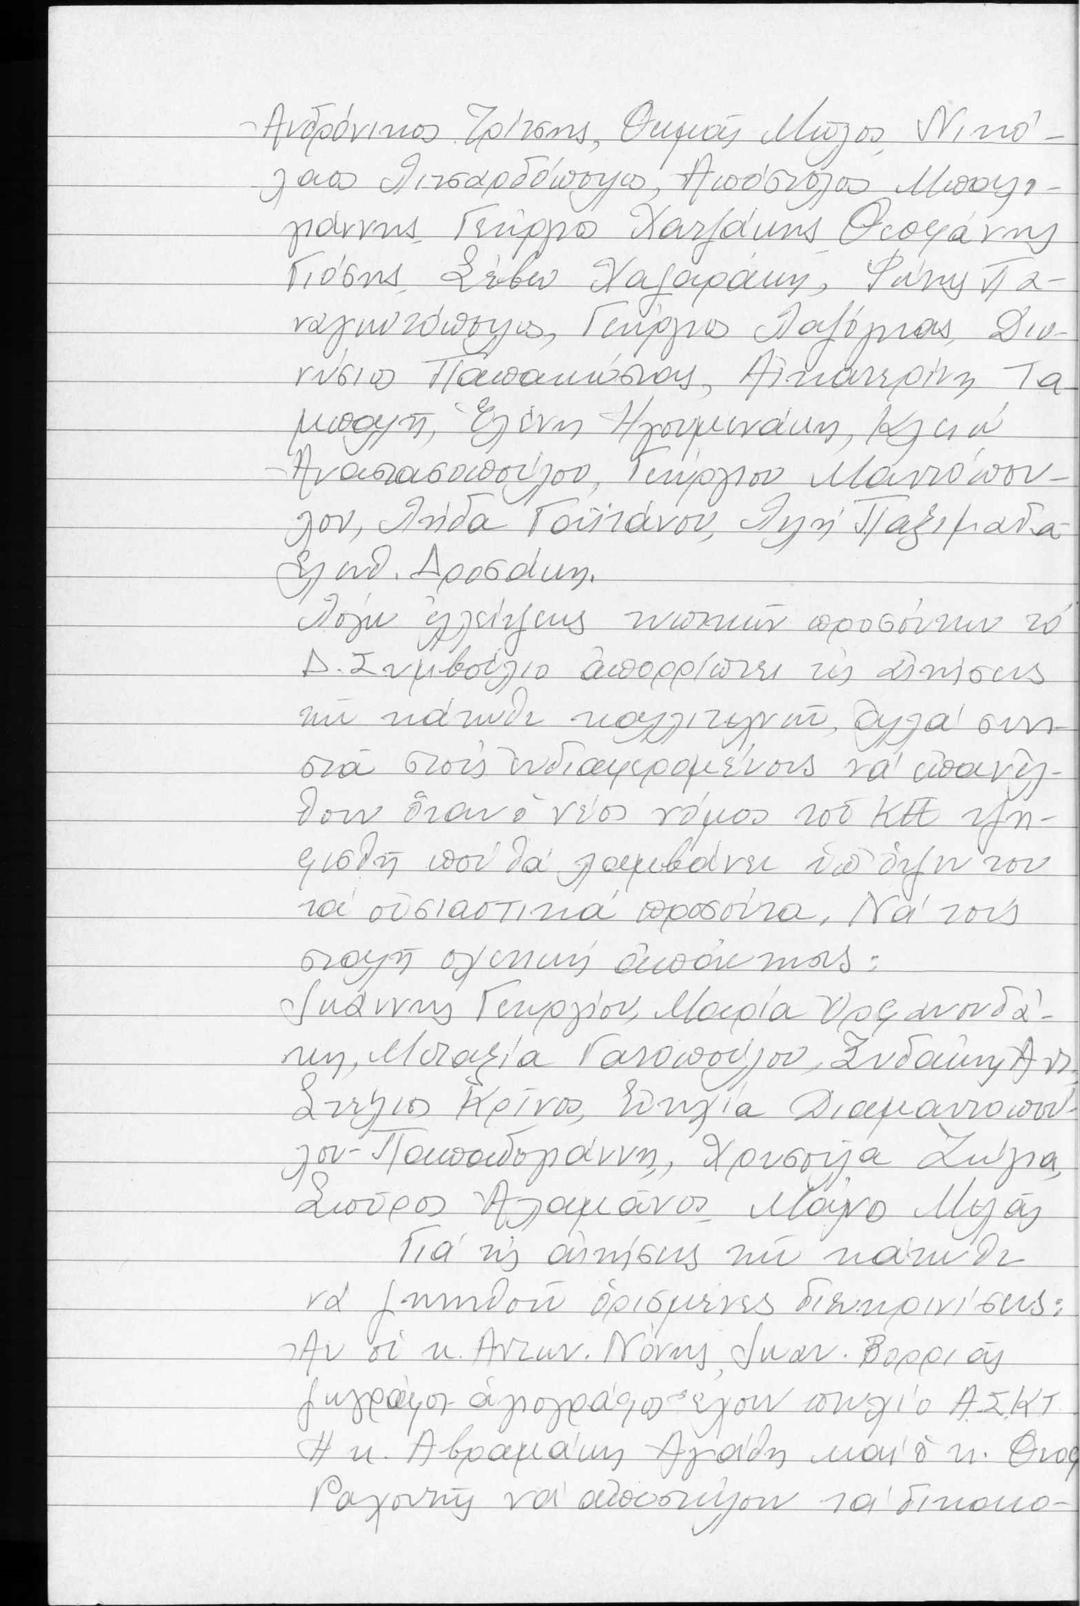 Ἀνδρόνικος Τρίτσης, Θωμᾶς Μῶλος, Νικό-
λαος Λιτσαρδόπουλος, Ἀπόστολος Μπουλ-
γιάννης, Γεώργιος Χατζάκης Θεοφάνης
Γιόσης, Σέβω Χαζαράκη, Φώτης Πα-
ναγιωτόπουλος, Γεώργιος Λαζόγκας, Διο-
νύσιος Παπακώστας, Αἰκατερίνη Τα-
μπουρῆ, Ἑλένη Ἡγουμενάκη, Κλειώ
Ἀναστασοπούλου, Γεώργιου Μαντόπου-
λου, Λήδα Γαϊτάνου, Λιλή Παξιμαδᾶ
Ελευθ. Δροσάκη.
Λόγω ἐλλείψεως τυπικῶν προσόντων τό
Δ. Συμβούλιο ἀπορρίπτει τίς αἰτήσεις
τῶν κάτωθι καλλιτεχνῶν, ἀλλά συνι-
στᾶ στούς ἐνδιαφερομένους νά ἐπανέλ-
θουν ὅταν ὁ νέος νόμος τοῦ ΚΕ ψη-
φισθῆ πού θά λαμβάνει ὑπ' ὄψιν του
τά οὐσιαστικά προσόντα. Νά τούς
σταλῆ σχετική ἀπάντησις:
Ἰωάννης Γεωργίου, Μαρία Ὀρφανουδά-
κη, Μεταξία Γατοπούλου, Ξυδάκη Ἀντ.
Στέλιος Κρίνος, Εὐτυχία Διαμαντοπού-
λου-Παπαδογιάννη, Χρυσούλα Ζώγια,
Σπῦρος Ἀλαμάνος, Μάγιο Μελᾶς
Γιά τίς αἰτήσεις τῶν κάτωθι
νά ζητηθοῦν ὁρισμένες διευκρινίσεις:
Ἄν οἱ κ. Αντων. Νόνης, Ἰωαν. Βορριᾶς
ζωγράφοι ἁγιογράφοι ἔχουν πτυχίο Α.Σ.ΚΤ.
Ἡ κ. Αβραμάκη Αγάθη καί ὁ κ. Θεοφ
Ραχουτῆς νά ἀποστείλουν τά δικαιο-